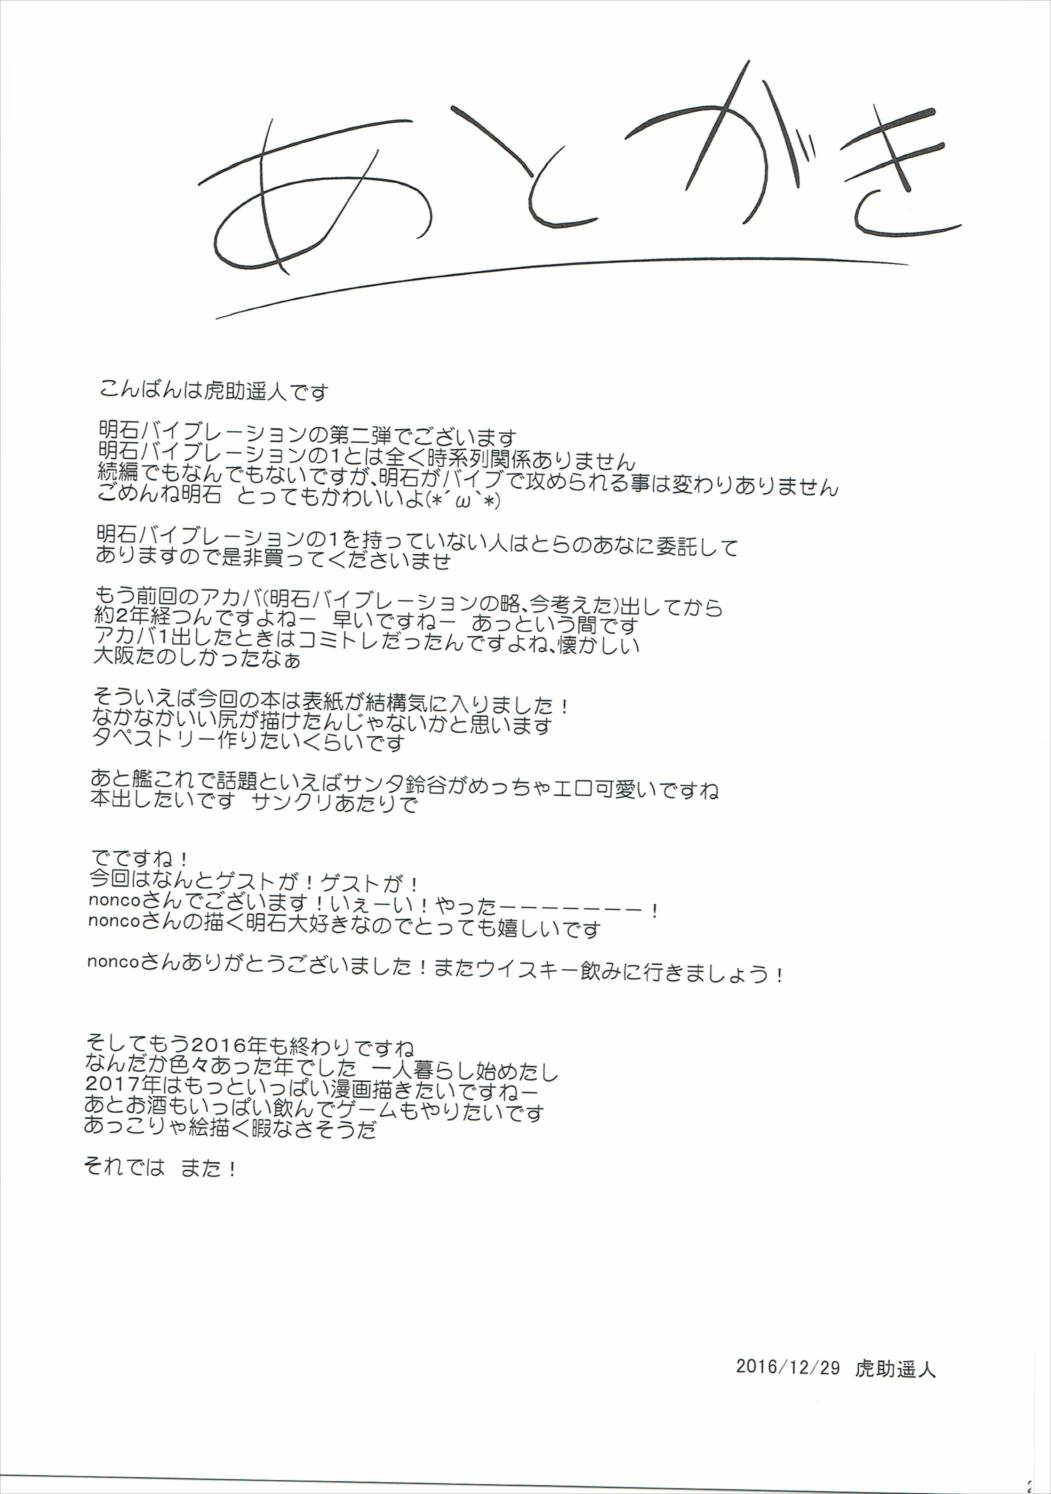 あとがき
こんばんは虎助遥人です
明石バイブレーションの第二弾でございます
明石バイブレーションの1とは全く時系列関係ありません
続編でもなんでもないですが、明石がバイブで攻められる事は変わりありません
ごめんね明石　とってもかわいいよ(*´ω`*)
明石バイブレーションの1を持っていない人はとらのあなに委託して
ありますので是非買ってくださいませ
もう前回のアカバ(明石バイブレーションの略、今考えた)出してから
約2年経つんですよねー　早いですねー　あっという間です
アカバ1出したときはコミトレだったんですよね、懐かしい
大阪たのしかったなぁ
そういえば今回の本は表紙が結構気に入りました！
なかなかいい尻が描けたんじゃないかと思います
タペストリー作りたいくらいです
あと艦これで話題といえばサンタ鈴谷がめっちゃエロ可愛いですね
本出したいです　サンクリあたりで
でですね！
今回はなんとゲストが！ゲストが！
noncoさんでございます！いぇーい！やったーーーーーーー！
noncoさんの描く明石大好きなのでとっても嬉しいです
noncoさんありがとうございました！またウイスキー飲みに行きましょう！
そしてもう2016年も終わりですね
なんだか色々あった年でした　一人暮らし始めたし
2017年はもっといっぱい漫画描きたいですねー
あとお酒もいっぱい飲んでゲームもやりたいです
あっこりゃ絵描く暇なさそうだ
それでは　また！
2016/12/29　虎助遥人